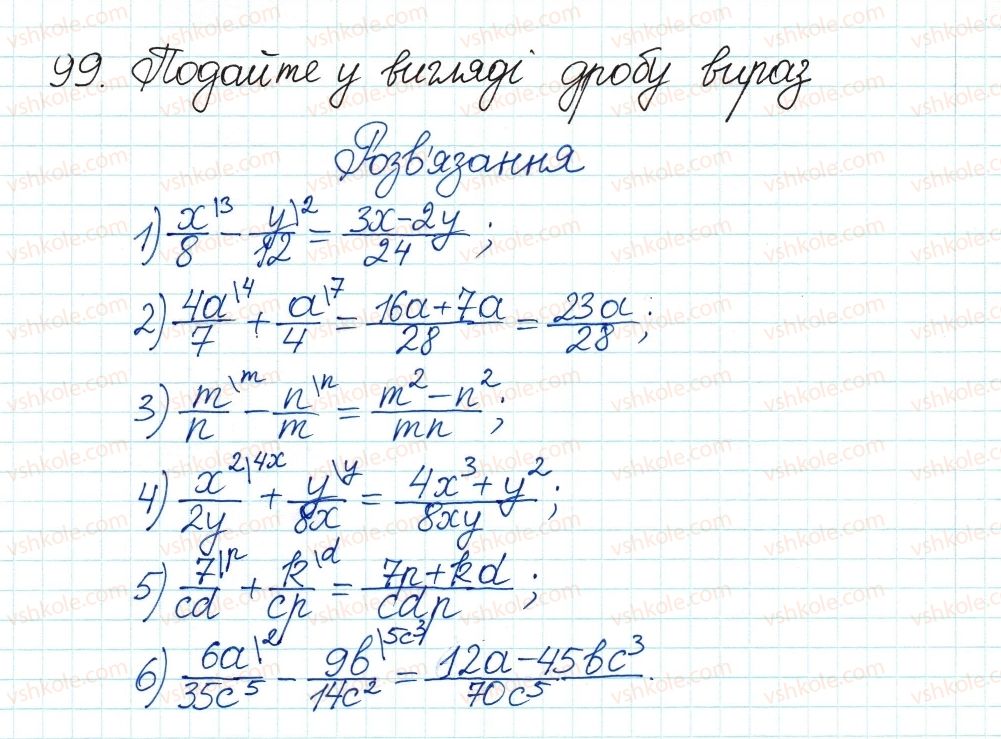 99. Подайте у вигляді дробу вираз
Розв'язання
1) x\3/8 - y\2/12 = (3x-2y)/24;
2) 4a\4/7 + a\7/4 = (16a+7a)/28 = 23a/28;
3) m\m/n - n\n/m = (m²-n²)/mn;
4) x²\4x/2y + y\y/8x = (4x³+y²)/8xy;
5) 7\p/cd + k\d/cp = (7p+kd)/cdp;
6) 6a\2/35c⁵ - 9b\5c³/14c² = (12a-45bc³)/70c⁵.
vshkole.com